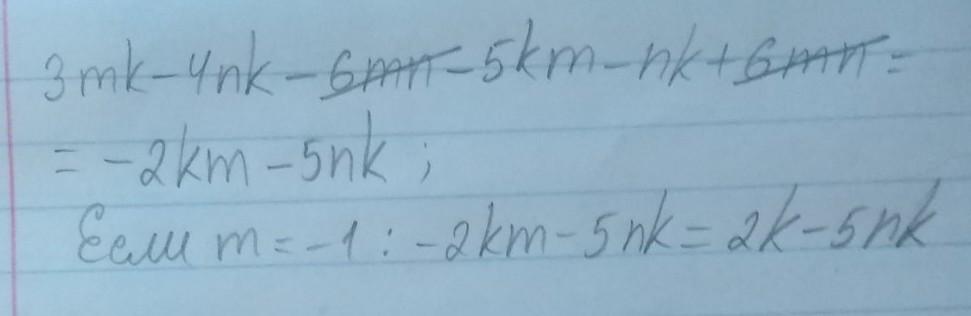 3mk-4nk-6mn-5km-nk+6mn=
=-2km-5nk;
Если m=-1: -2km-5nk=2k-5nk